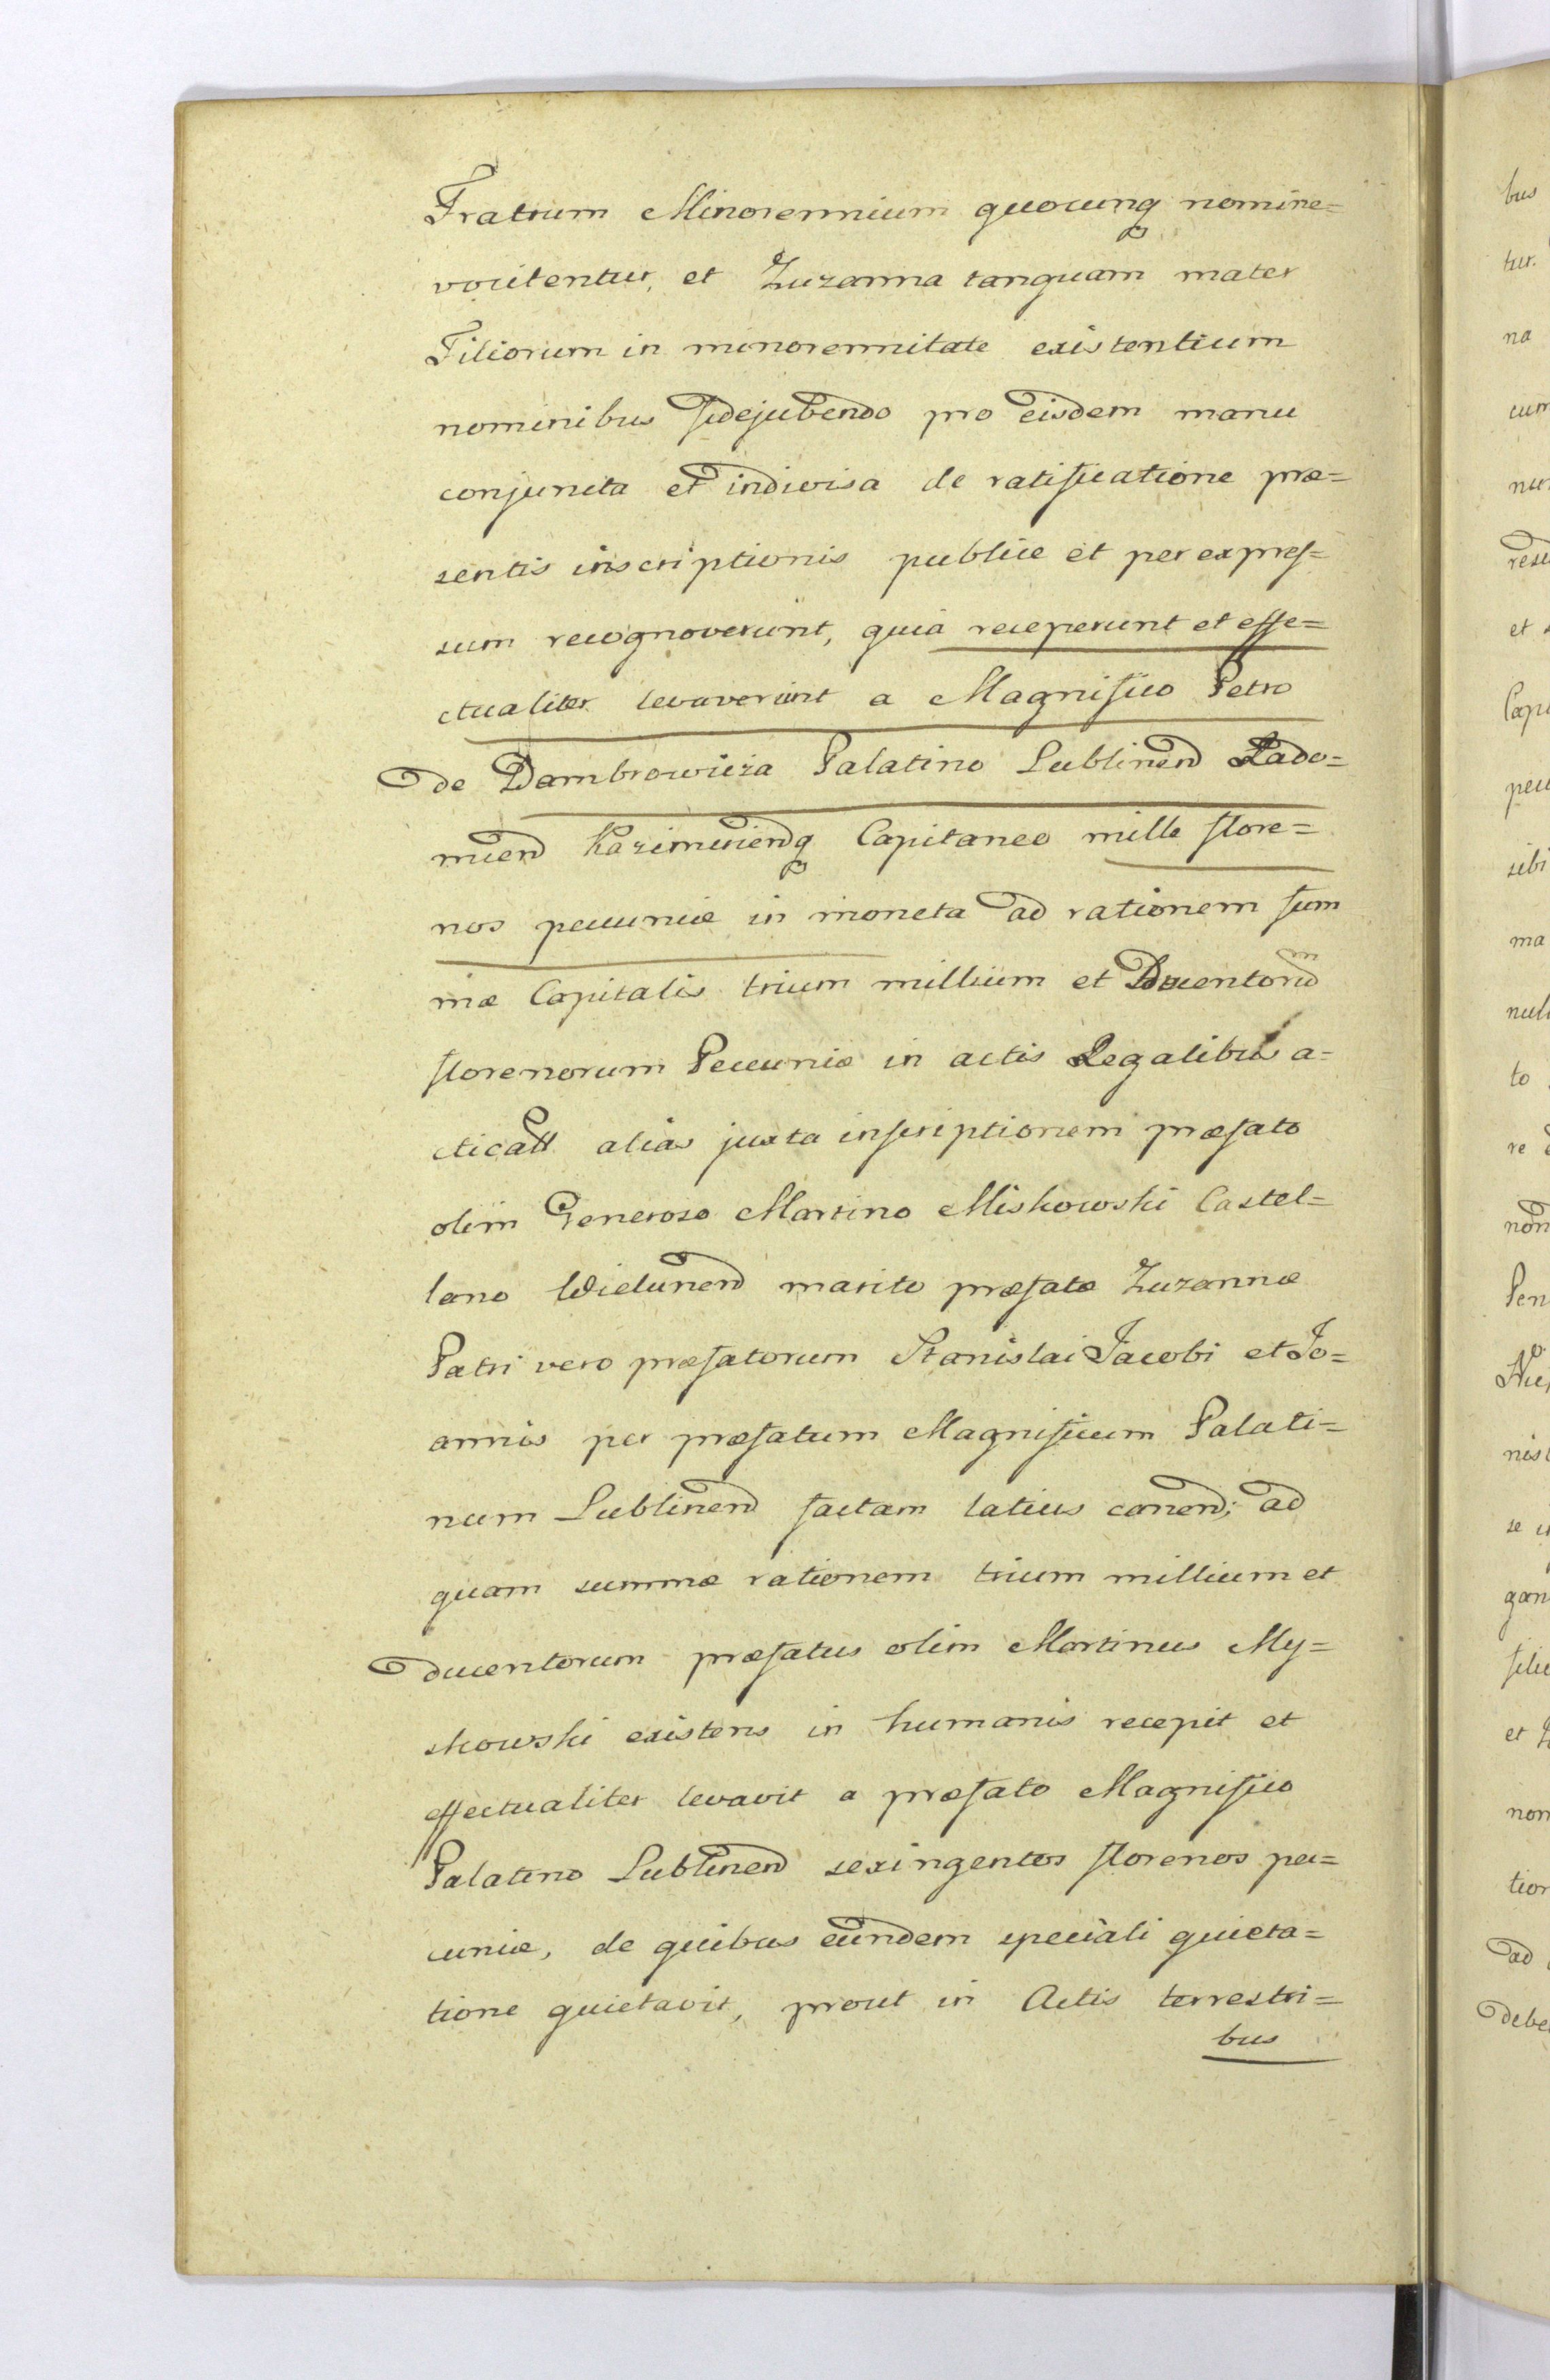 Fratrum Minorennium quocunq nomine=
vocitentur, et Zuzanna tanquam mater
Filiorum in minorennitate existentium
nominibus fidejubendo pro eisdem manu
conjuncta et indivisa de ratificatione præ=
sentis inscriptionis publice et per expres=
sum recognoverunt, quia receperunt et effe=
ctualiter levaverunt a Magnifico Petro
de Dambrowicza Palatino Lublinend Rado=
miend Kazimiriendq Capitaneo mille flore=
nos pecuniæ in moneta ad rationem sum
mæ Capitalis trium millium et Ducentorum
florenorum Pecuniæ in actis Regalibus a=
cticatt alias juxta inscriptionem præfato
olim Generoso Martino Miskowski Castel=
lano Wielunend marito præfatæ Zuzannæ
Patri vero præfatorum Stanislai Jacobi et Jo=
annis per præfatum Magnificum Palati=
num Lublinend factam latius canend; ad
quam summæ rationem trium millium et
ducentorum præfatus olim Martinus My=
skowski existens in humanis recepit et
effectualiter levavit a præfato Magnifico
Palatino Lublinend sexingentos florenos pe=
cuniæ, de quibus eundem speciali quieta=
tione quietavit, prout in Actis terrestri=
bus
bus
tur.
na
cum
et
sibi
ma
to
re
non
et
non
ad